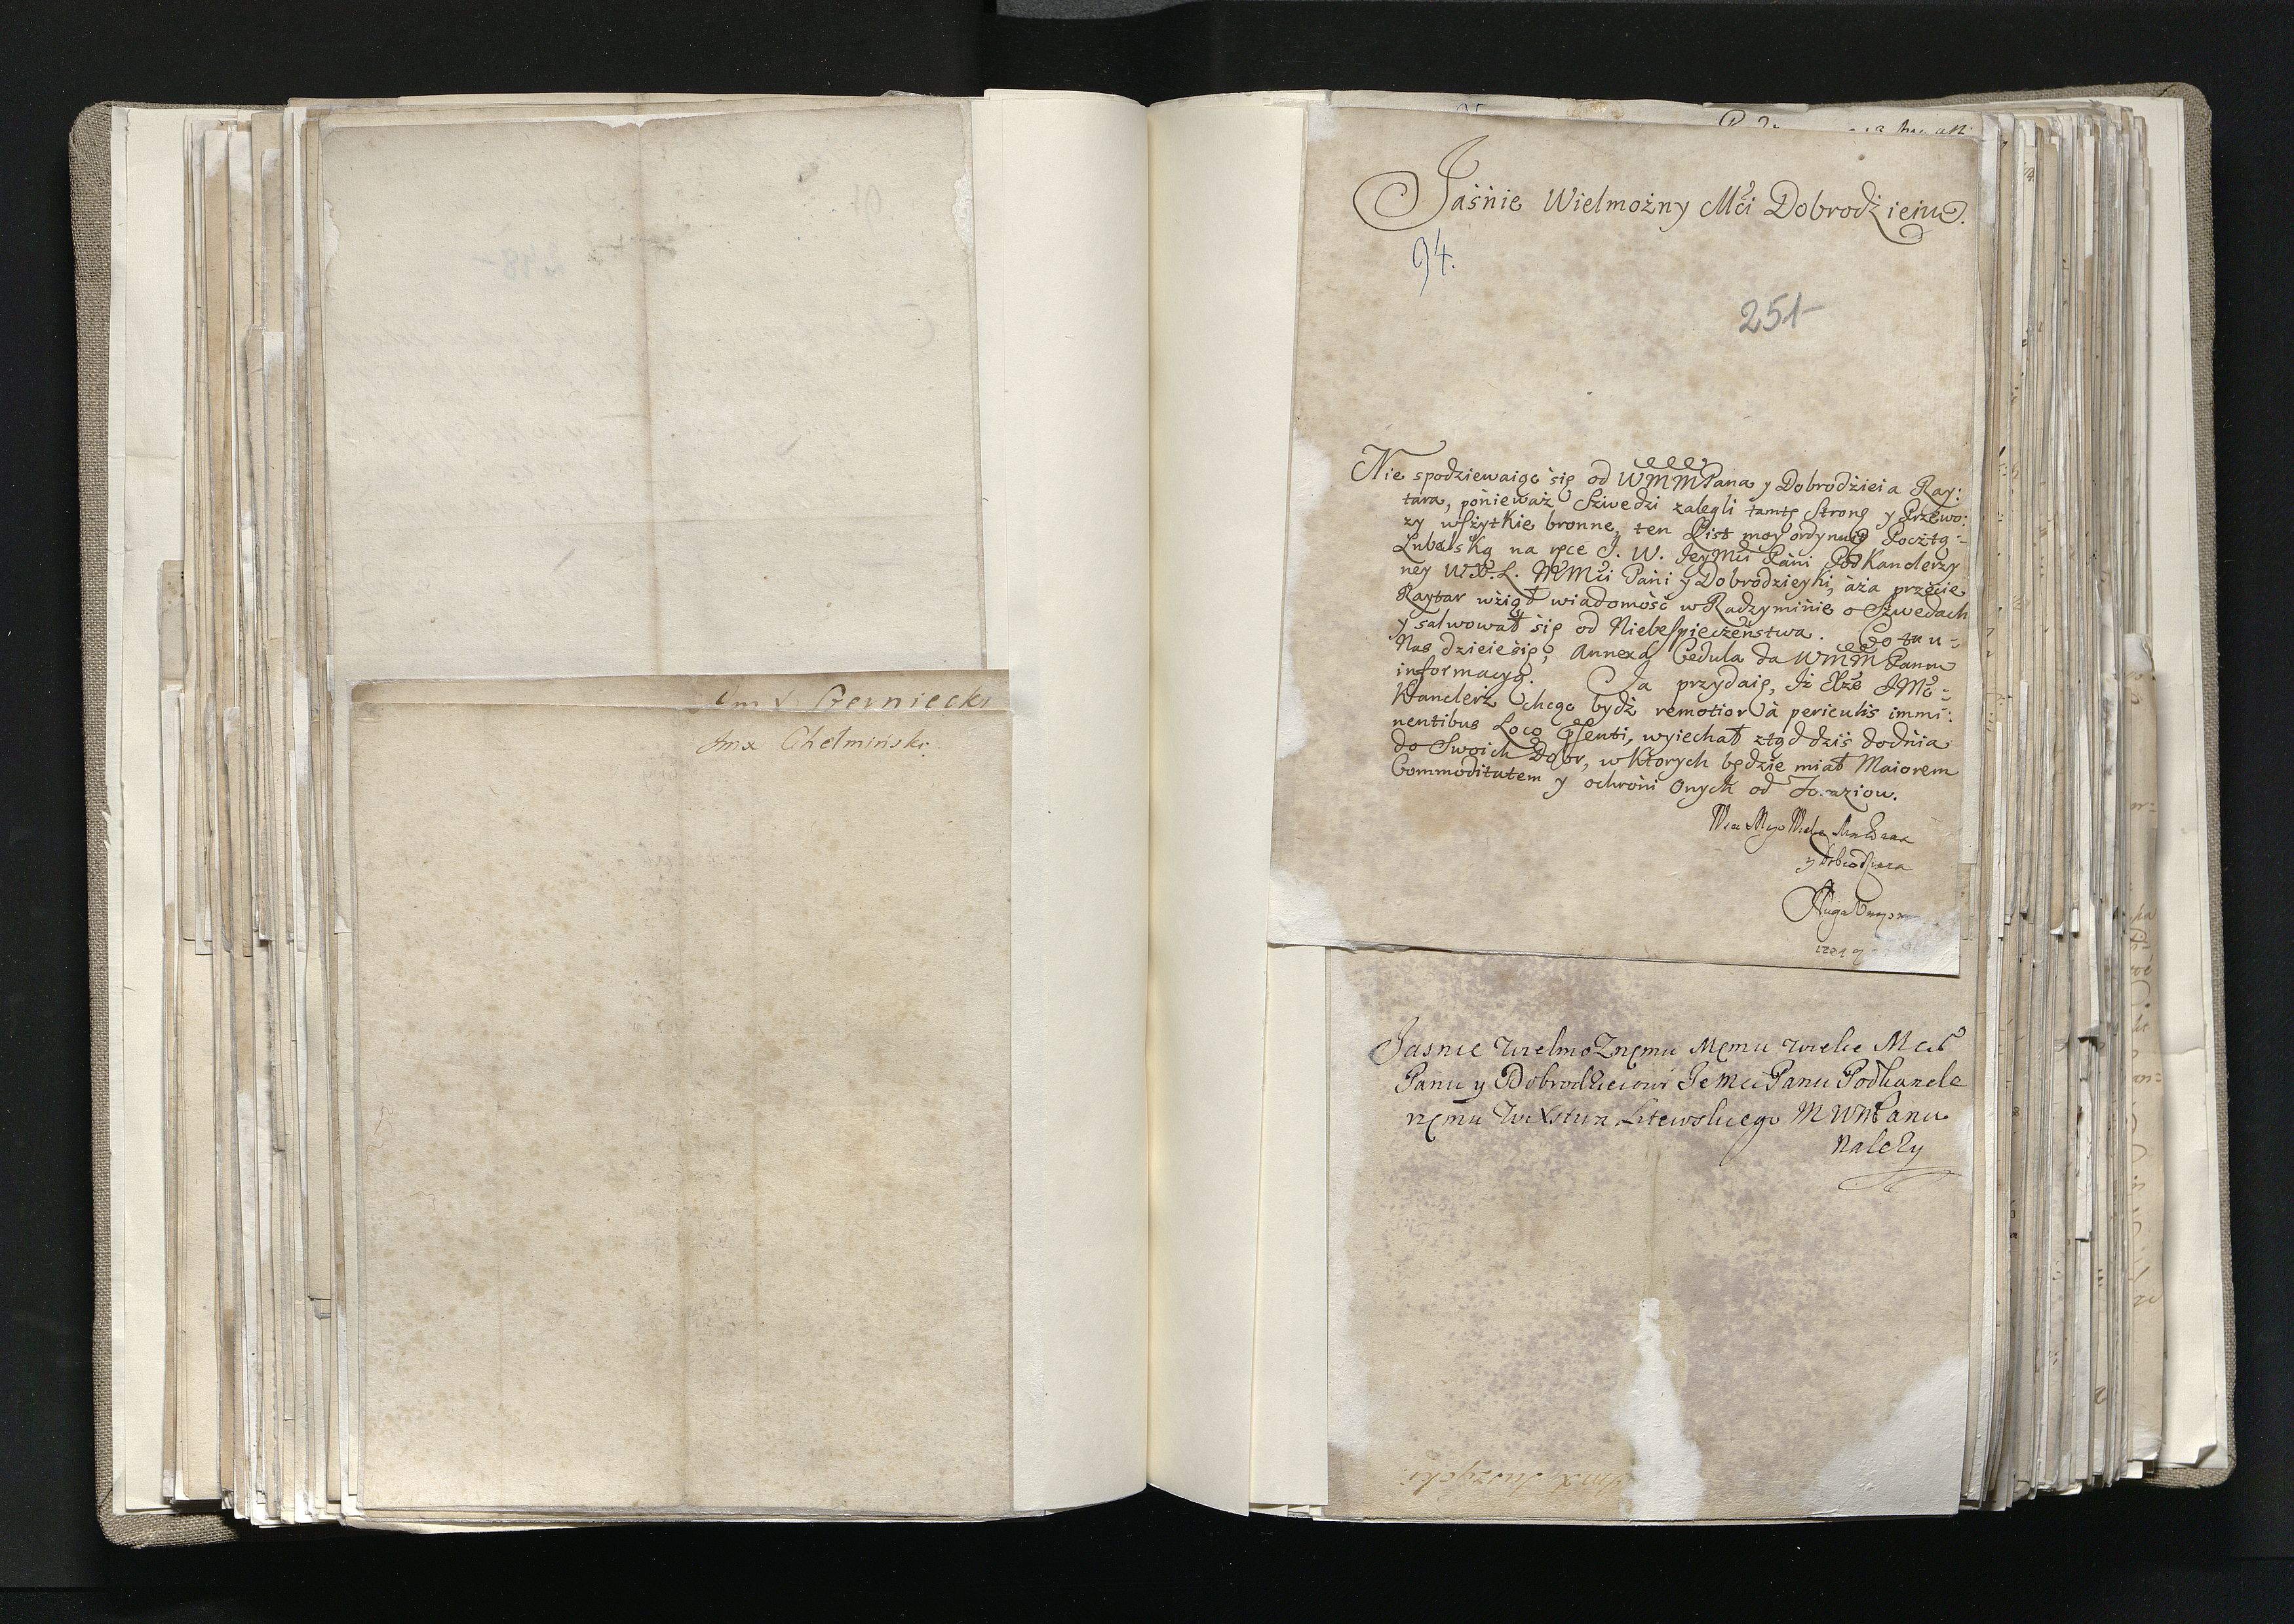 Jmx Czerniecki
Jmx Chełminski
Jaśnie Wielmożny Mći Dobrodzieiu.
94.
251
Nie spodziewaiąc się od WMM Pana y Dobrodzieia Ray:
tara, ponieważ Szwedzi zalegli tamtę Stronę y Przewo:
zy wszytkie bronne, ten List moy ordynuię Pocztą=
Lubelską na ręce J. W. JeyMći Pani PodKanclerzy
ney W.X.L. MMći Pani y Dobrodzieyki, aża przecie
Raytar wżiął wiadomość w Radzyminie o Szwedach
y salwował się od Niebespieczeństwa. Co tu u=
Nas dzieie się, Annexa Cedula da WMM Panu
informacyą. Ja przydaię, Jż Xże JMć=
Kanclerz chcąc bydź remotior à periculis immi:
nentibus Loco pſenti, wyiechał ztąd dziś dodnia
do Swoich Dobr, w Ktorych będzie miał Maiorem
Commoditatem y ochroni Onych od
y Dobrodzieia
Sługa
Jasnie WielmoZnemu Memu Wielce Mći
Panu y Dobrodzieiowi Je Mći Panu Podkancle
rzemu WXstwa Litewskiego M WMPanu
NaleZy
Jmx Juszycki